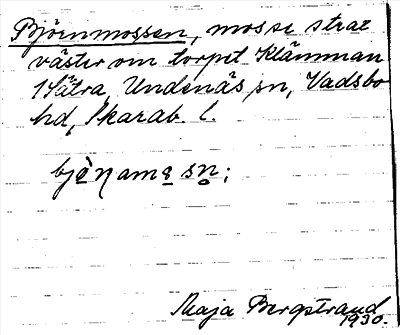 Björnmossen, mosse strax
väster om torpet Klämman
i Sätra, Undenäs sn, Vadsbo
hd, Skarab. l.
Maja Bergstrand
1930.